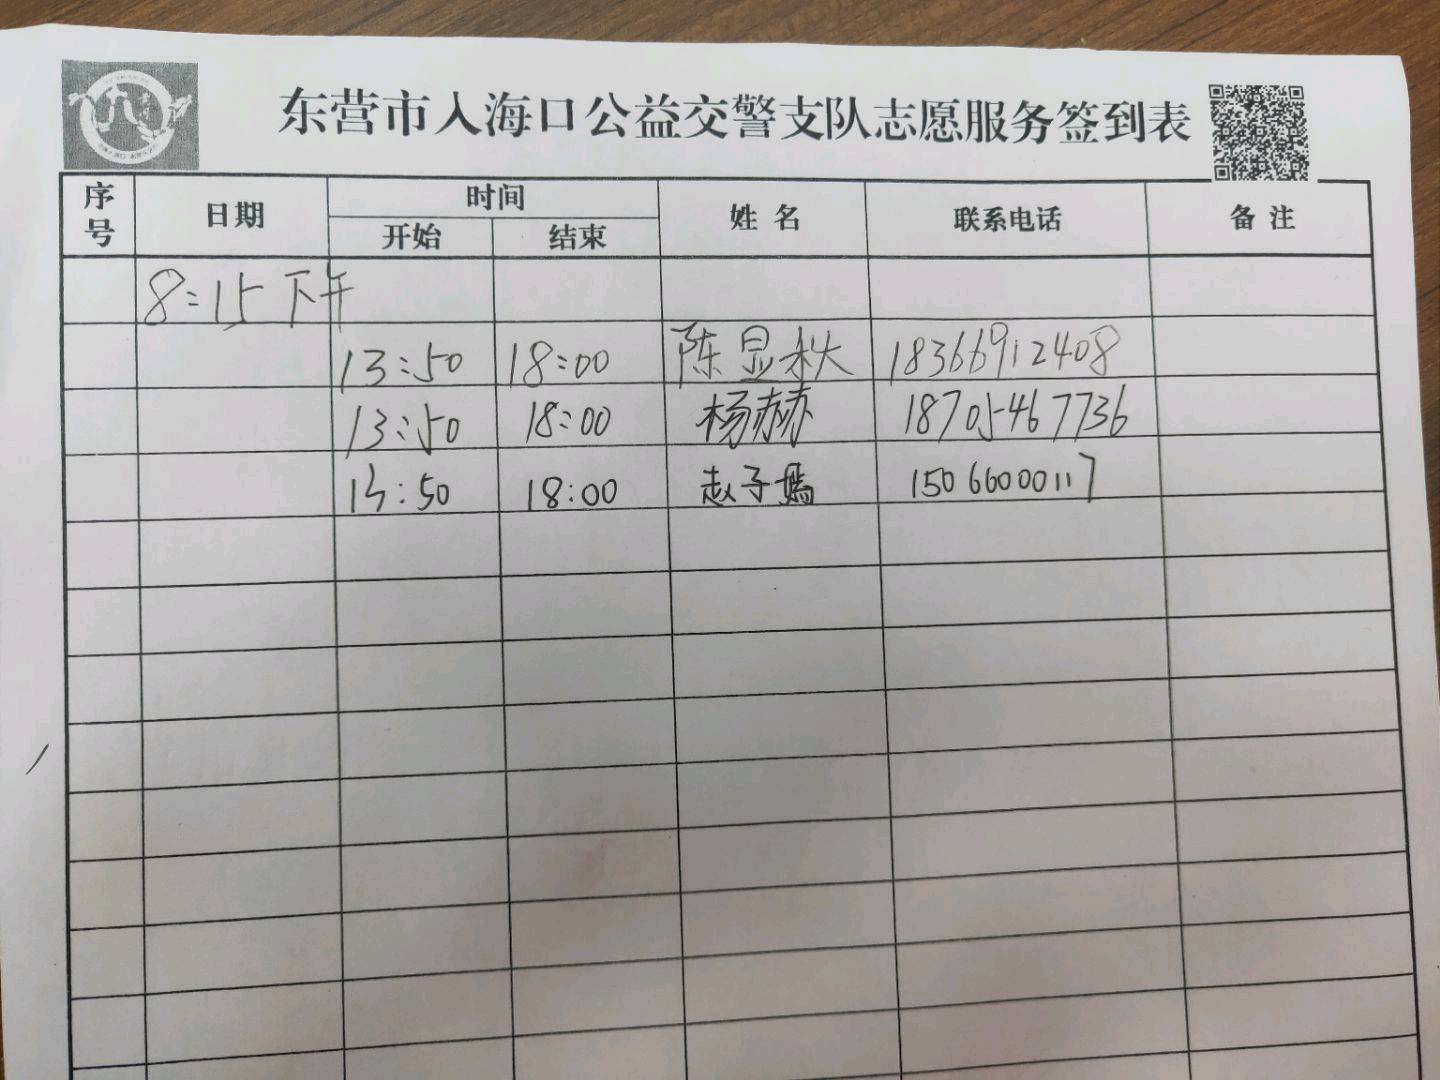 东营市入海口公益交警支队志愿服务签到表
序号 日期 时间 姓名 联系电话 备注
开始 结束
8:15 下午
13:50 18:00 陈显秋 18366912408
13:50 18:00 杨赫 18705467736
13:50 18:00 赵子嫣 15066000117